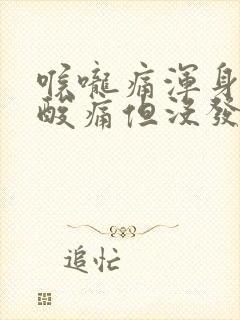 喉嚨痛渾身
酸痛但沒發
追忙